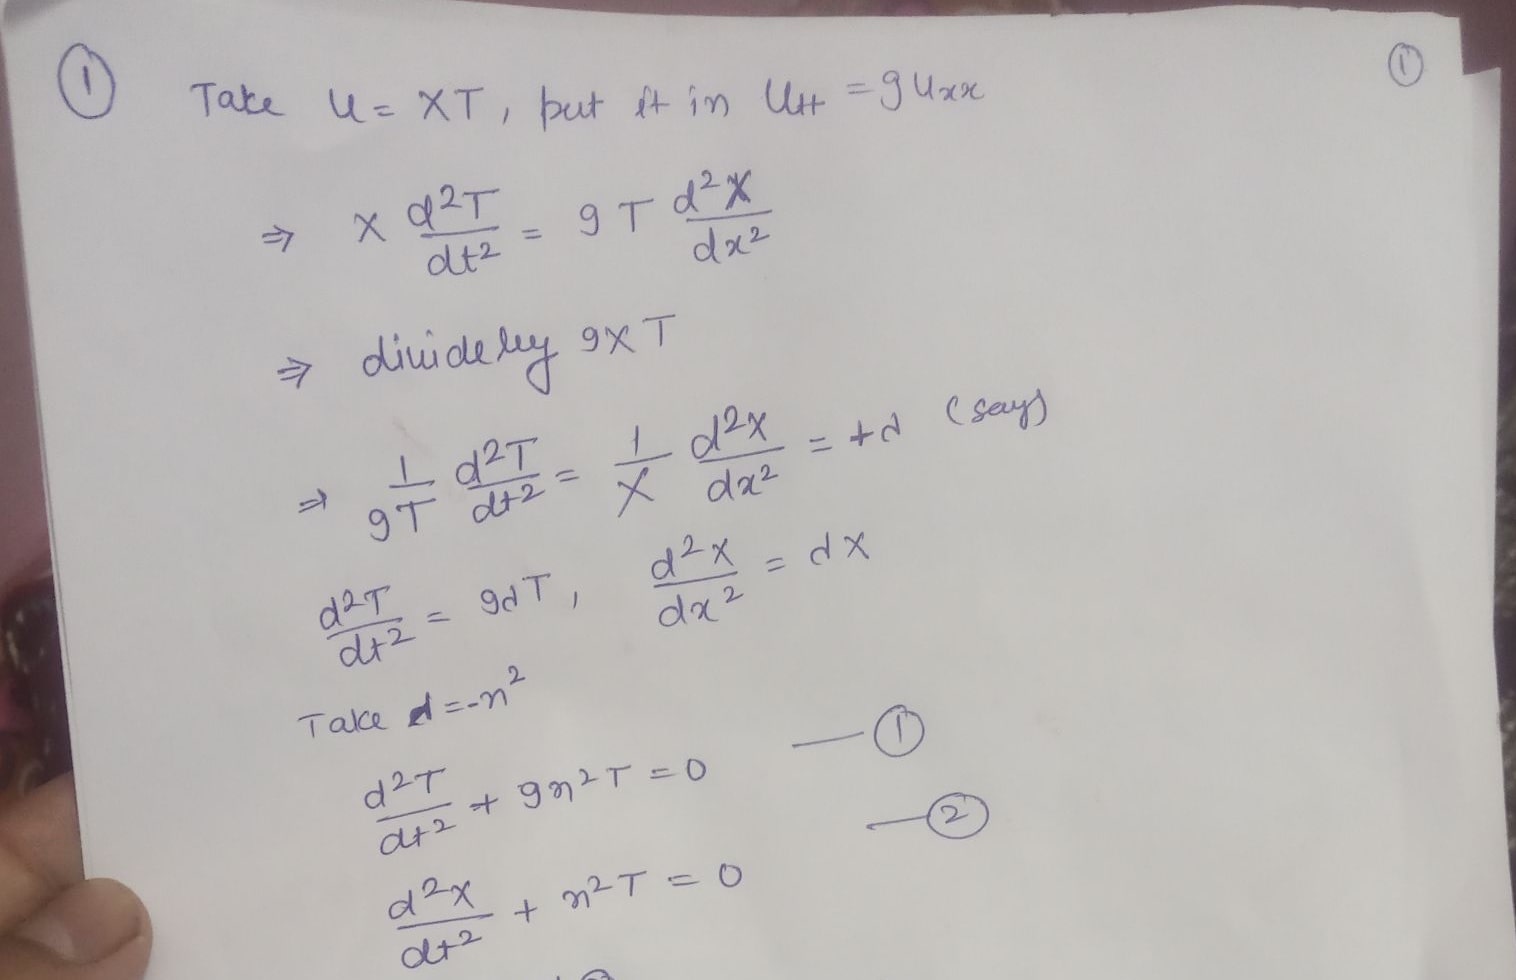 ① Take u = XT, put it in Utt = 9Uxx ①
⇒ X d²T/dt² = 9T d²X/dx²
⇒ divide by 9XT
⇒ 1/9T d²T/dt² = 1/X d²X/dx² = +d (say)
d²T/dt² = 9dT, d²X/dx² = dX
Take d = -n²
d²T/dt² + 9n²T = 0 —①
d²X/dt² + n²T = 0 —②